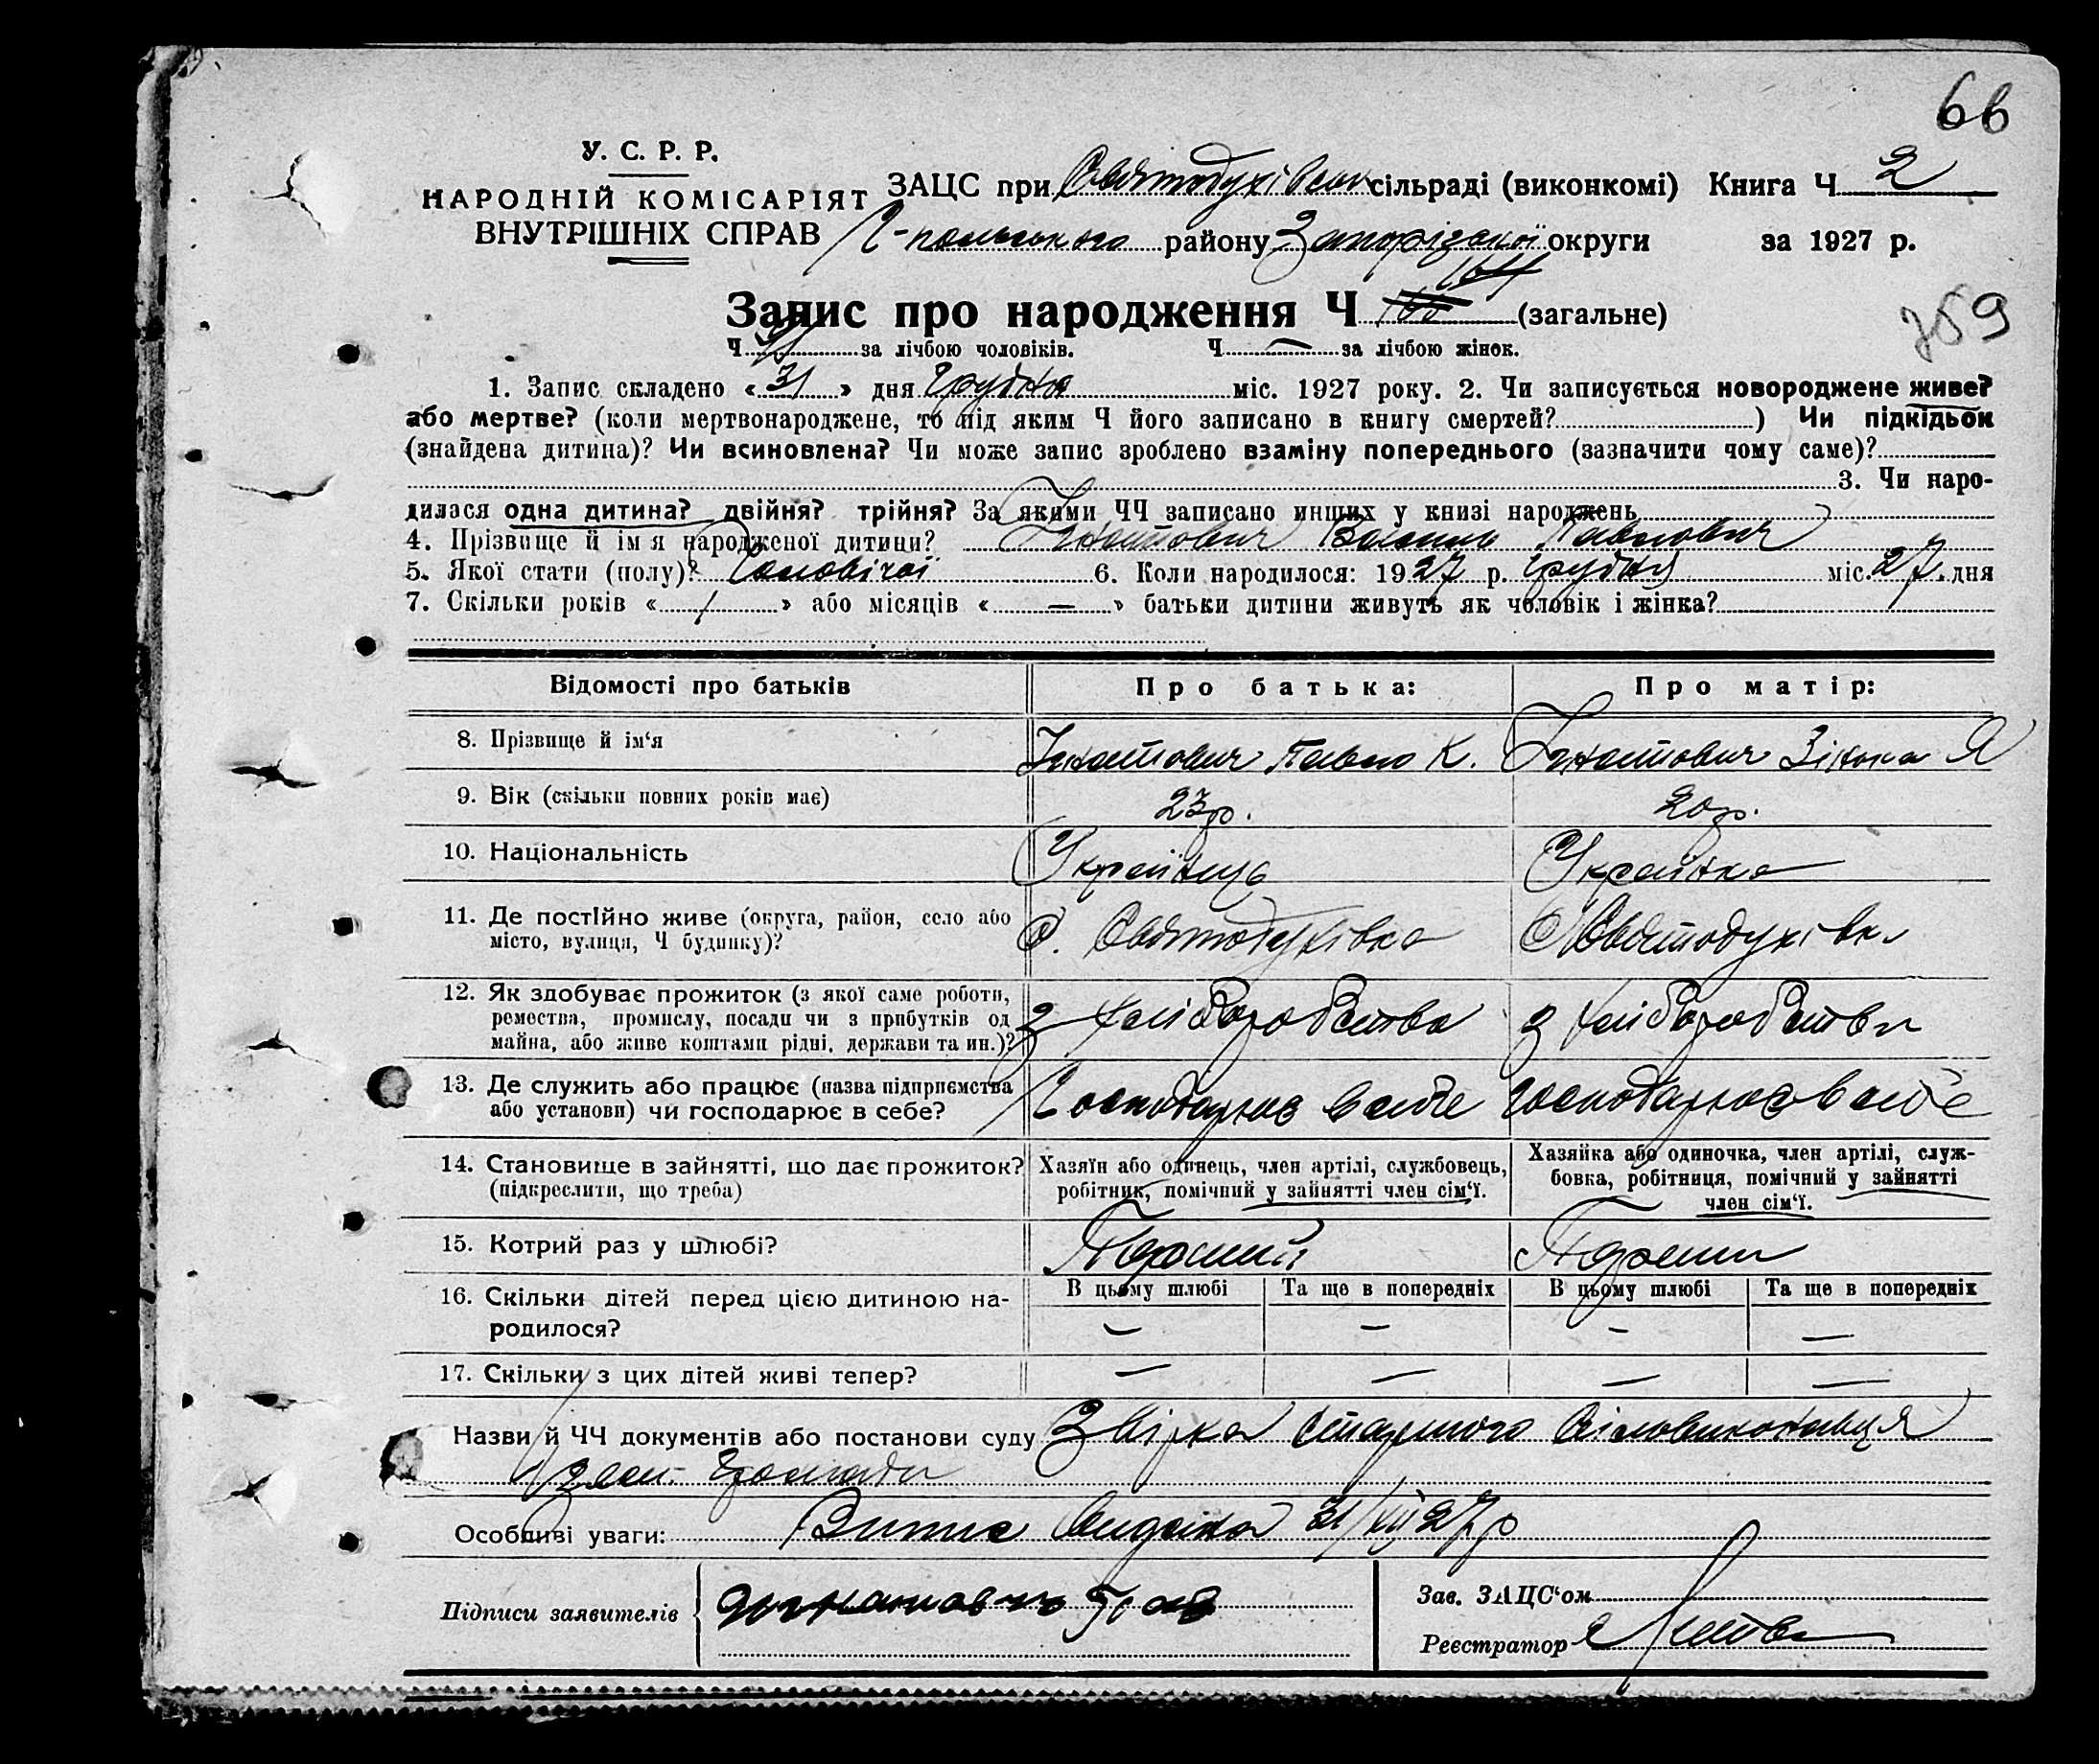 66
У. С. Р. Р.
НАРОДНІЙ КОМІСАРІЯТ
ВНУТРІШНІХ СПРАВ
ЗАЦС при Святодухівськ сільраді (виконкомі) Книга Ч 2
Г-польського району Запорізької округи за 1927 р.
Запис про народження Ч 164 (загальне)
759
Ч за лічбою чоловіків. Ч — за лічбою жінок.
1. Запис складено «31» дня Грудня міс. 1927 року. 2. Чи записується новороджене живе?
або мертве? (коли мертвонароджене, то під яким Ч його записано в книгу смертей? ) Чи підкідьок
(знайдена дитина)? Чи всиновлена? Чи може запис зроблено взаміну попереднього (зазначити чому саме)?
3. Чи наро-
дилася одна дитина? двійня? трійня? За якими ЧЧ записано инших у книзі народжень
4. Прізвище й ім я народженої дитини? Ігнатович Василь Павлович
5. Якої стати (полу)? Чоловічої 6. Коли народилося: 1927 р. Грудня міс. 27 дня
7. Скільки років « / » або місяців « — » батьки дитини живуть як чоловік і жінка?
Відомості про батьків Про батька: Про матір:
8. Прізвище й ім‘я Ігнатович Павло К. Ігнатович Зінька Я
9. Вік (скільки повних років має) 23 р. 20 р.
10. Національність Українець Українка
11. Де постійно живе (округа, район, село або
місто, вулиця, Ч будинку)? С. Святодухівка С. Святодухівка
12. Як здобуває прожиток (з якої саме роботи,
ремества, промислу, посади чи з прибутків од
майна, або живе коштами рідні, держави та ин.)? З хліборобства З хліборобства
13. Де служить або працює (назва підприємства
або установи) чи господарює в себе? Господарює в себе господарює в себе
14. Становище в зайнятті, що дає прожиток?
(підкреслити, що треба)
Хазяїн або одинець, член артілі, службовець,
робітник, помічний у зайнятті член сім‘ї.
Хазяйка або одиночка, член артілі, служ-
бовка, робітниця, помічний у зайнятті
член сім‘ї.
15. Котрий раз у шлюбі? Перший Перший
В цьому шлюбі Та ще в попередніх В цьому шлюбі Та ще в попередніх
16. Скільки дітей перед цією дитиною на-
родилося? — — — —
17. Скільки з цих дітей живі тепер? — — — —
Назви й ЧЧ документів або постанови суду Звірка старшого Сільвиконавця
зем. громади
Особливі уваги: Витис видано 31/XII 27 р
Підписи заявителів
Зав. ЗАЦС‘ом
Реєстратор